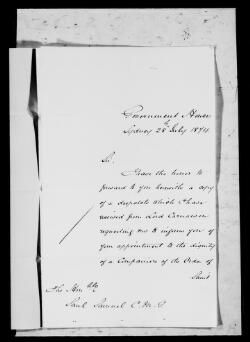 Government House
Sydney 28th July 1874
Sir,
I have the honor to
forward to you herewith a copy
of a despatch which I have
received from Lord Carnarvon
requesting me to inform you of
your appointment to the dignity
of a Companion of the Order of
Saint
The Honble
Saul Samuel C.M.G